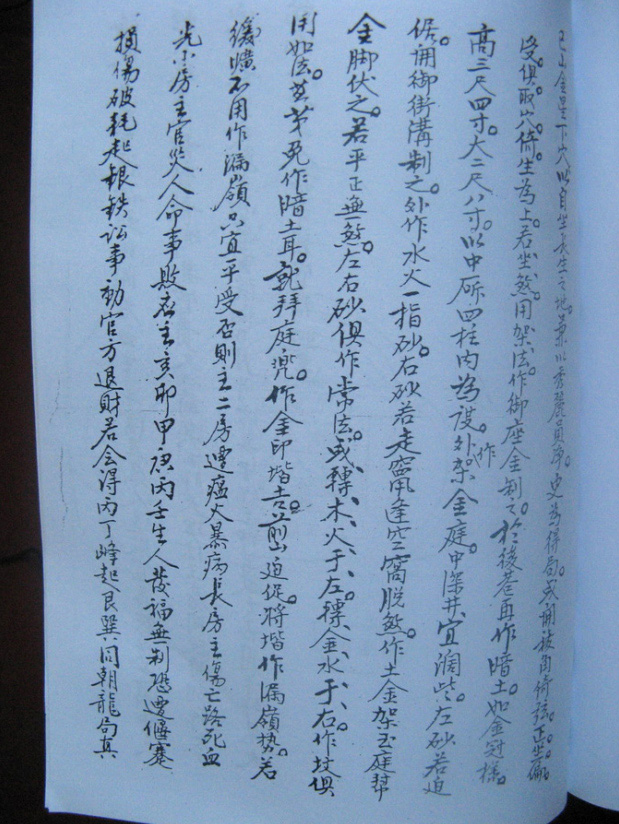 巳山金星下穴以自坐長生之地兼以秀麗員淨更為得局或開被角倚弦正坐偏
受俱取穴倚生為上若坐煞用架法作御座金制之於後巷再作暗土如金冠樣
高三尺四寸大二尺八寸以中斫四柱内為護外架作金庭中深井宜濶些左砂若迫
倨用御街溝制之外作水火一指砂右砂若走竄逢空窩脫煞作土金架玉庭幇
全脚伏之若平正無煞左右砂俱作常法或轉木火于左轉金水于右作坟俱
用如法並莫作暗土耳就拜庭兠作金印堦吉前迫促将堦作漏嶺勢若
緩曠不用作漏嶺只宜平受否則主二房遭瘟火暴病長房主傷亡路死血
光小房主官災人命事敗應主亥卯甲庚丙壬生人發福無制恐遭偃蹇
損傷破耗起銀銭訟事動官方退財若会得丙丁峰起艮巽同朝龍局真